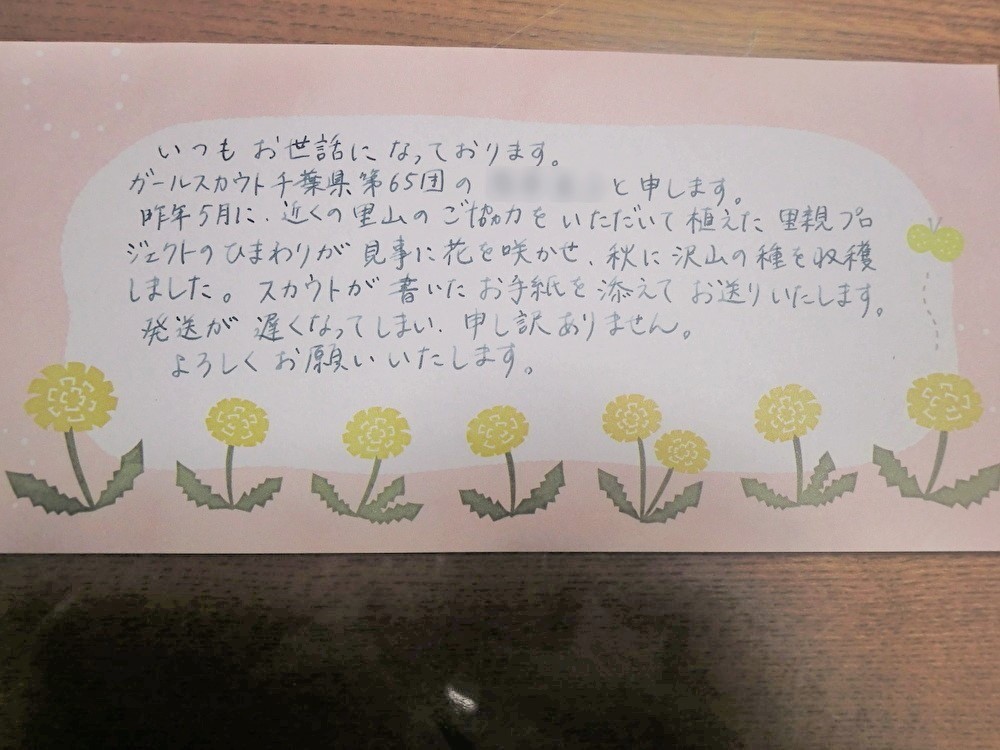 いつも お世話に なっております。
ガールスカウト千葉県第65団の と申します。
昨年5月に、近くの里山のご協力をいただいて植えた里親プロ
ジェクトのひまわりが見事に花を咲かせ、秋に沢山の種を収穫
しました。スカウトが書いたお手紙を添えてお送りいたします。
発送が遅くなってしまい、申し訳ありません。
よろしくお願いいたします。